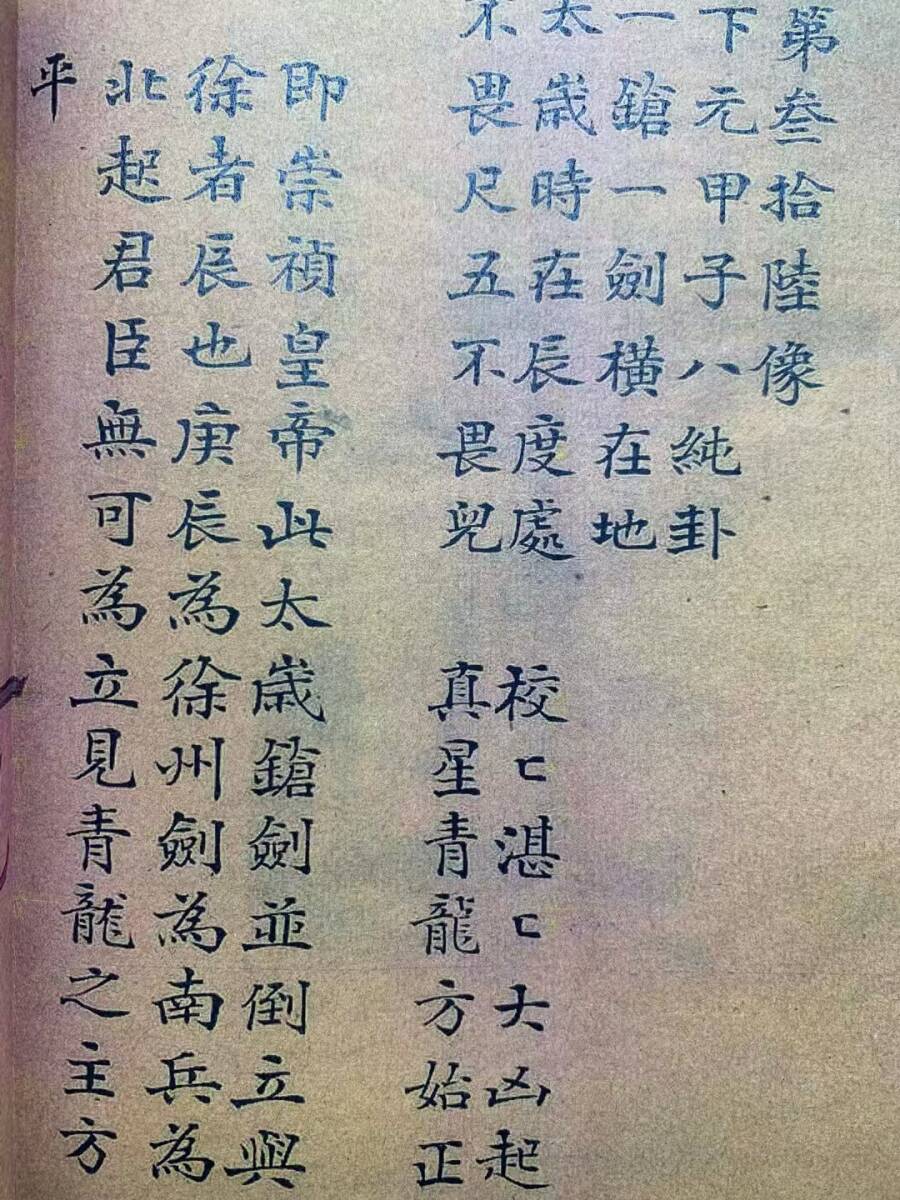 第叁拾陸像
下元甲子八純卦
一鎗一劍橫在地
太歲時在辰度處 校匕湛匕大凶起
不畏尺五不畏兒 真星青龍方始正
即崇禎皇帝此太歲鎗劍並倒立與
徐者辰也庚辰為徐州劍為南兵為
北起君臣無可為立見青龍之主方
平